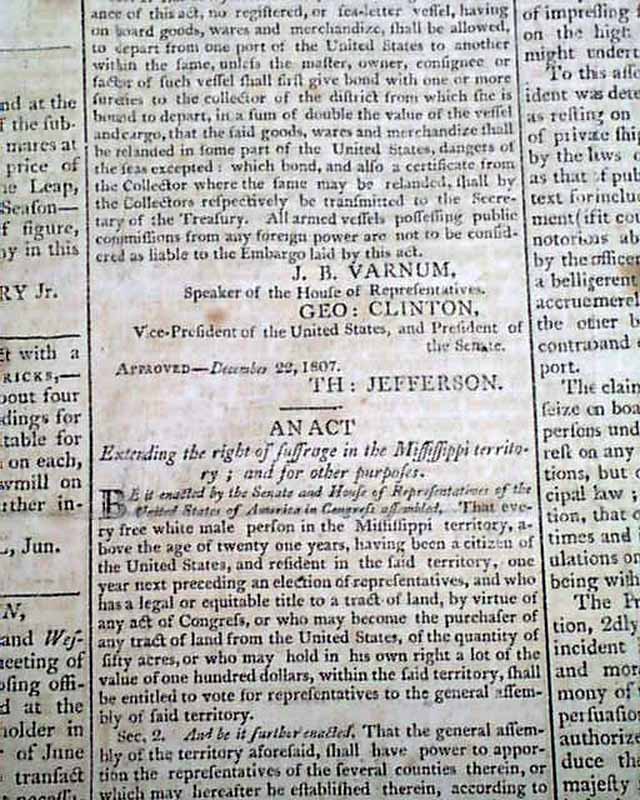 nd at the
f the ſub-
mares at
price of
e Leap,
Seaſon—
f figure,
y in this
RY Jr.
ct with a
RICKS,—
bout four
dings for
itable for
on each,
ſawmill on
urther in-
L, Jun.
N,
and Weſ-
neeting of
oſing offi-
d at the
holder in
of June
tranſact
ance of this act, no regiſtered, or ſea-letter veſſel, having
on board goods, wares and merchandize, ſhall be allowed,
to depart from one port of the United States to another
within the ſame, unleſs the maſter, owner, conſignee or
factor of ſuch veſſel ſhall firſt give bond with one or more
ſureties to the collector of the diſtrict from which ſhe is
bound to depart, in a ſum of double the value of the veſſel
and cargo, that the ſaid goods, wares and merchandize ſhall
be relanded in ſome part of the United States, dangers of
the ſeas excepted: which bond, and alſo a certificate from
the Collector where the ſame may be relanded, ſhall by
the Collectors reſpectively be tranſmitted to the Secre-
tary of the Treaſury. All armed veſſels poſſeſſing public
commiſſions from any foreign power are not to be conſid-
ered as liable to the Embargo laid by this act.
J. B. VARNUM,
Speaker of the Houſe of Repreſentatives.
GEO: CLINTON,
Vice-Preſident of the United States, and Preſident of
the Senate.
APPROVED—December 22, 1807.
TH: JEFFERSON.
AN ACT
Extending the right of ſuffrage in the Miſſiſſippi territo-
ry; and for other purpoſes.
BE it enacted by the Senate and Houſe of Repreſentatives of the
United States of America in Congreſs aſſembled, That eve-
ry free white male perſon in the Miſſiſſippi territory, a-
bove the age of twenty one years, having been a citizen of
the United States, and reſident in the ſaid territory, one
year next preceding an election of repreſentatives, and who
has a legal or equitable title to a tract of land, by virtue of
any act of Congreſs, or who may become the purchaſer of
any tract of land from the United States, of the quantity of
fifty acres, or who may hold in his own right a lot of the
value of one hundred dollars, within the ſaid territory, ſhall
be entitled to vote for repreſentatives to the general aſſem-
bly of ſaid territory.
Sec. 2. And be it further enacted, That the general aſſem-
bly of the territory aforeſaid, ſhall have power to appor-
tion the repreſentatives of the ſeveral counties therein, or
which may hereafter be eſtabliſhed therein, according to
of impreſſing
on the high
might undert
To this aſſe
ident was dete
as reſting on
of private ſhip
by the laws
as that of pub
text for inclu
ment (if it con
notorious ab
by the officer
a belligerent
accrue merel
the other b
contraband
port.
The claim
ſeize on boa
perſons und
reſt on any
tions, but
cipal law;
tion, that
times and
ulations o
being with
The Pr
tion, 2dly
incident
and mor
mony of
perſuaſio
authorize
duce the
majeſty